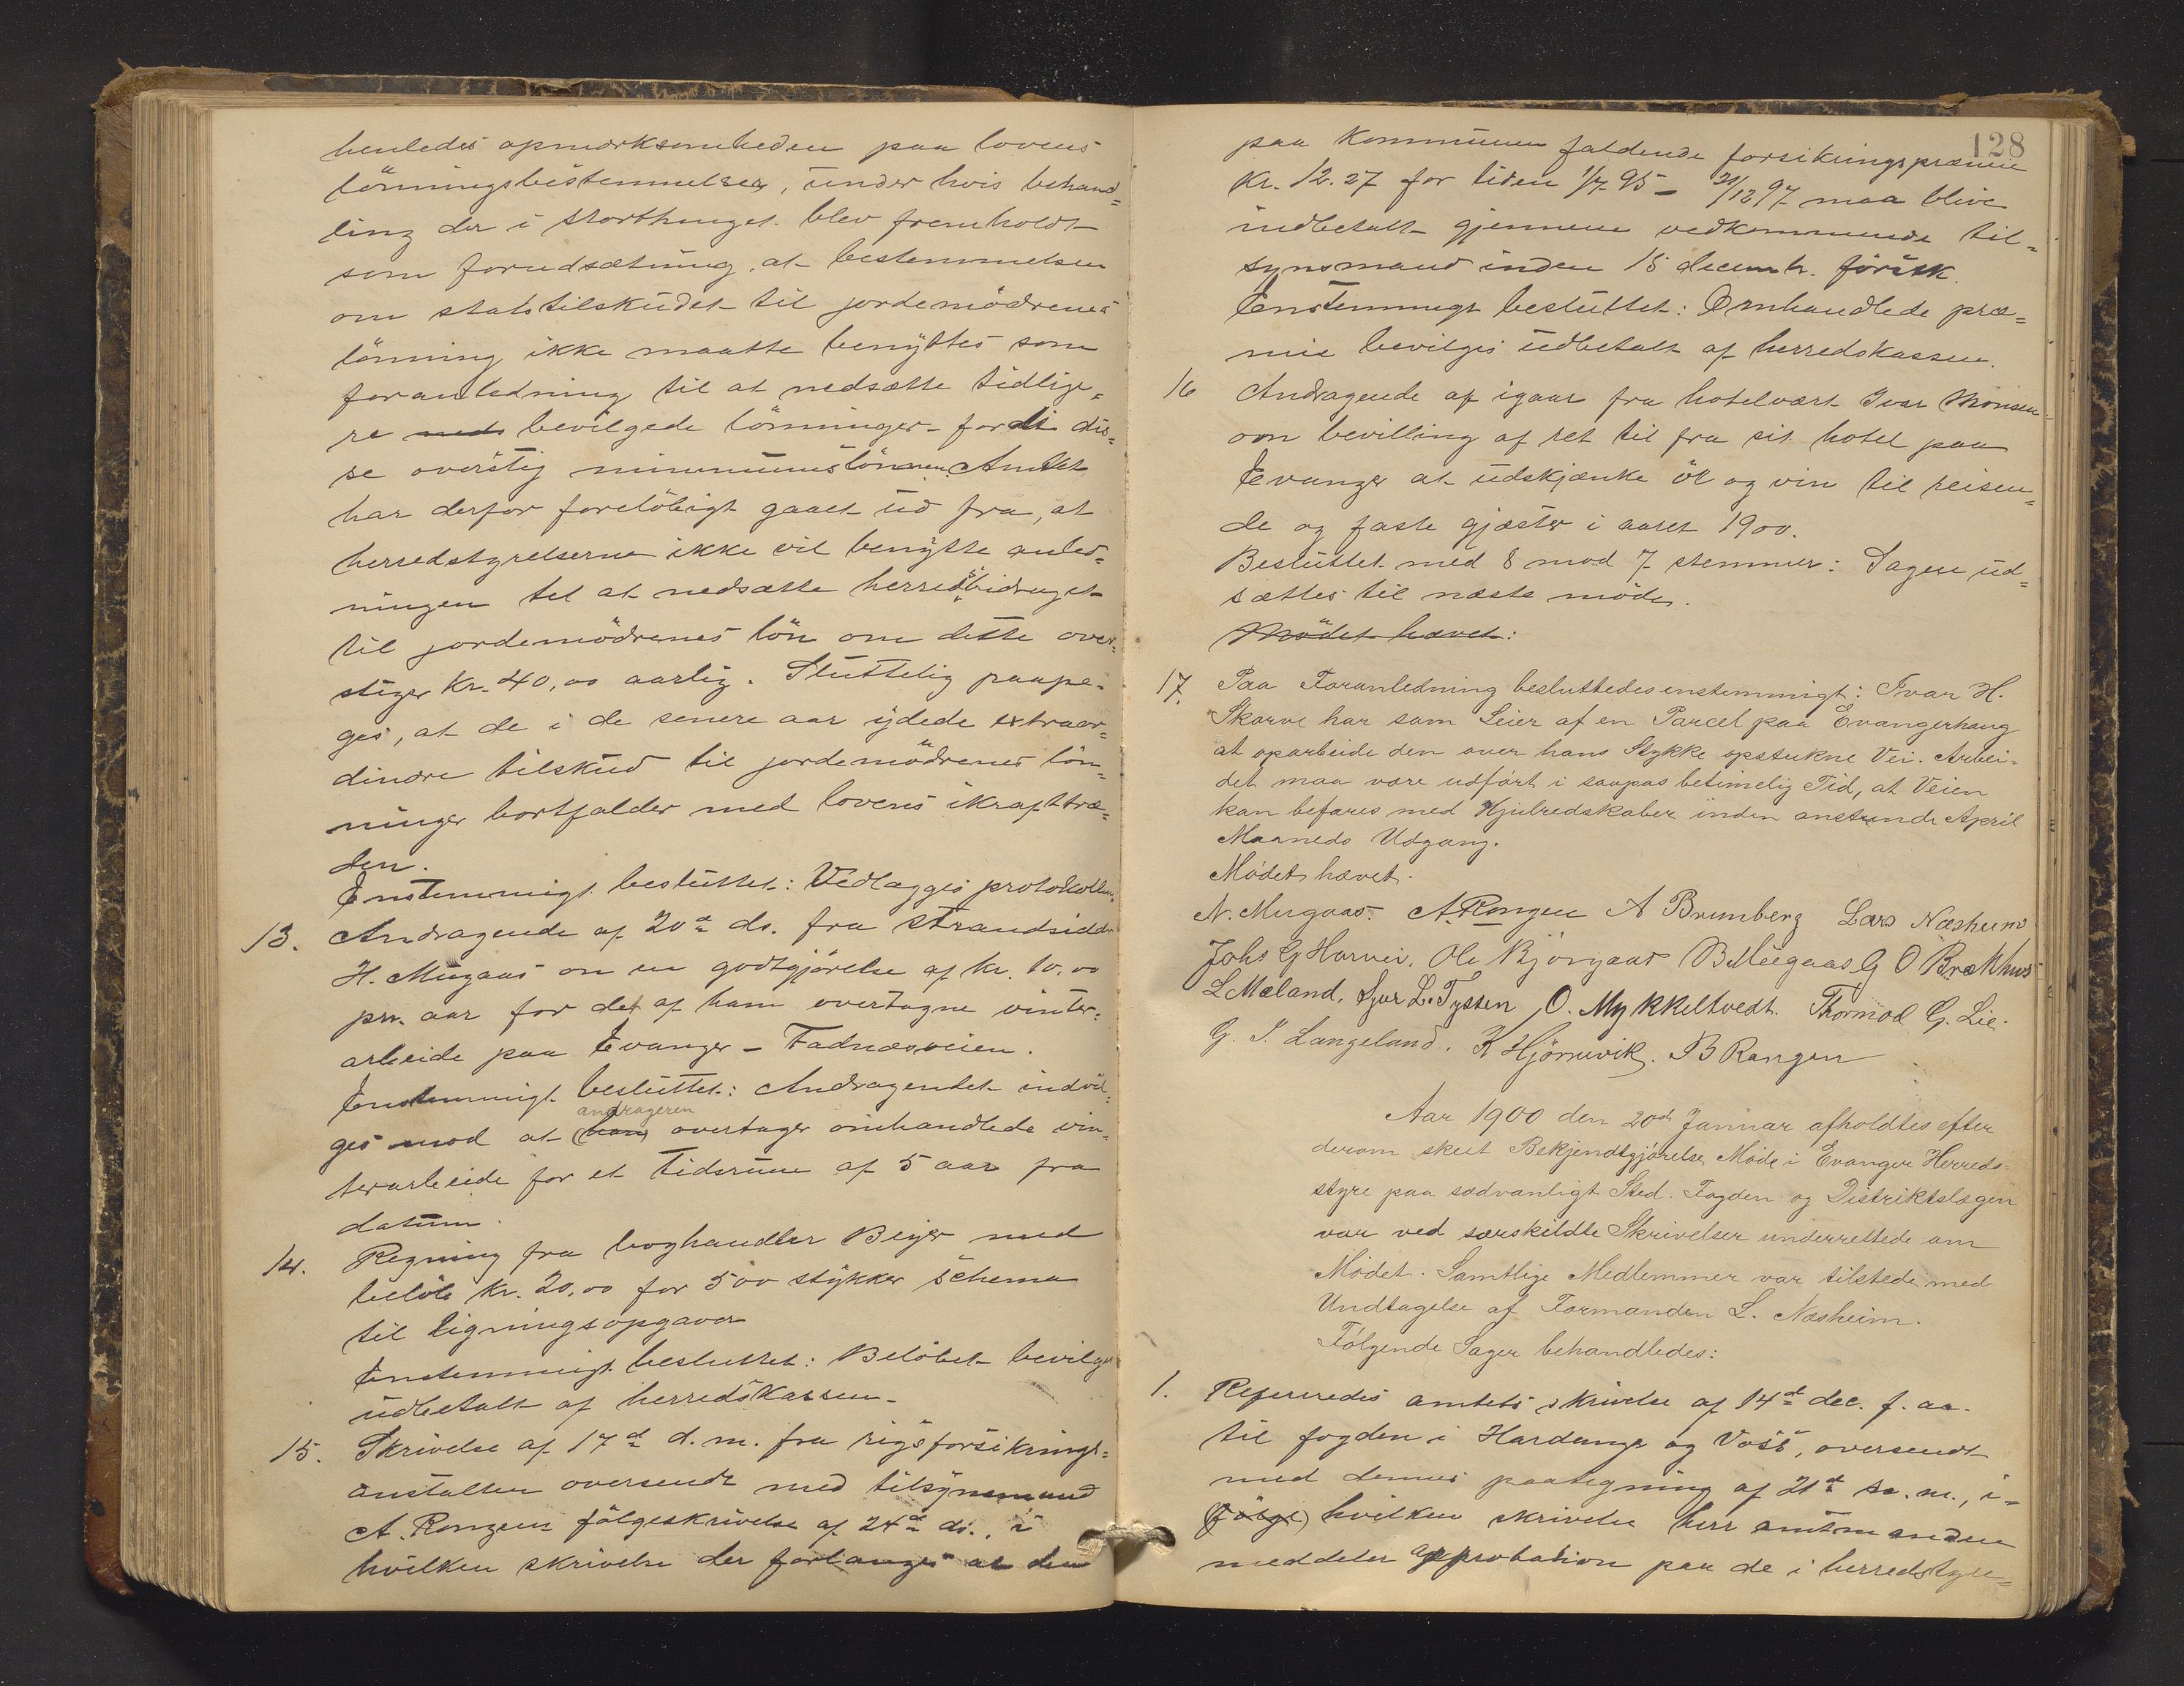 henledes opmærksomheden paa lovens
lönningsbestemmelser, under hvis behand=
ling der i storthinget blev fremholdt
som forudsætning, at bestemmelsen
om statstilskudet til jordemödrenes
lönning ikke maatte benyttes som
foranledning til at nedsætte tidlige=
re neds bevilgede lönninger fordi dis=
se oversteg minimumslönnen. Amtet
har derfor forelöbigt gaaet ud fra, at
herredstyrelserne ikke vil benytte anled=
ningen til at nedsætte herredsbidraget
til jordemödrenes lön om dette over=
stiger Kr. 40,00 aarlig. Sluttelig paape=
ges, at de i de senere aar ydede extraor=
dinære tilskud til jordemödrenes lön=
ninger bortfalder med lovens ikrafttræ=
den.
Enstemmigt besluttet: Vedlægges protokollen.
13. Andragende af 20de ds. fra strandsidder
H. Mugaas om en godtgjörelse af kr. 10.00
pr. aar for det af ham overtagne vinter=
arbeide paa Evanger - Fadnæsveien.
Enstemmigt besluttet: Andragendet indvil=
andrageren
ges mod at (han) overtager omhandlede vin=
terarbeide for et tidsrum af 5 aar fra
datum.
14. Regning fra boghandler Beyer med
belöb Kr. 20,00 for 500 stykker schema
til ligningsopgaver
Enstemmigt besluttet: Belöbet bevilges
udbetalt af herredskassen.
15. Skrivelse af 17de d.m. fra rigsforsikrings=
anstalten oversendt med tilsynsmand
A. Rongens fölgeskrivelse af 24de ds., i
hvilken skrivelse der forlanges at den
128
paa Kommunen faldende forsikringspræmie
Kr. 12.27 for tiden 1/7 95 - 31/12 97 maa blive
indbetalt gjennem vedkommende til=
synsmand inden 15 decembr. förstk.
Enstemmigt besluttet: Omhandlede præ=
mie bevilges udbetalt af herredskassen.
16 Andragende af igaar fra hotelvært Ivar Monsen
om bevilling af ret til fra sit hotel paa
Evanger at udskjænke öl og vin til reisen=
de og faste gjæster i aaret 1900.
Besluttet med 8 mod 7 stemmer: Sagen ud=
sættes til næste möde.
Mödet hævet:
17. Paa Foranledning besluttedes enstemmigt: Ivar H.
Skorve har som Leier af en Parcel paa Evangerhaug
at oparbeide den over hans Stykke opstukne Vei. Arbei=
det maa være udfört i saapas betimelig Tid, at Veien
kan befares med Hjulredskaber inden anstunde April
Maaneds Udgang.
Mödet hævet.
N. Mugaas. A. Rongen A Brunberg Lars Næsheim
Johs G Horvei. Ole Bjørgaas B. Mügaas G O Brækhus
L Mæland. Sjur L. Tyssen O. Mykkeltvedt. Thormod G. Lie.
G. I. Langeland. K Hjörnevik. B Rongen
Aar 1900 den 20de Januar afholdtes efter
derom skeet Bekjendtgjörelse Möde i Evanger Herreds=
styre paa sædvanligt Sted. Fogden og Distriktslægen
var ved særskildte Skrivelser underrettede om
Mödet. Samtlige Medlemmer var tilstede med
Undtagelse af Formanden L. Næsheim.
Fölgende Sager behandledes:
1. Refereredes amtets skrivelse af 14de dec. f. aa.
til fogden i Hardanger og Voss, oversendt
med dennes paategning af 21de s. m., i=
(fölge) hvilken skrivelse herr amtmanden
meddeler approbation paa de i herredstyre=